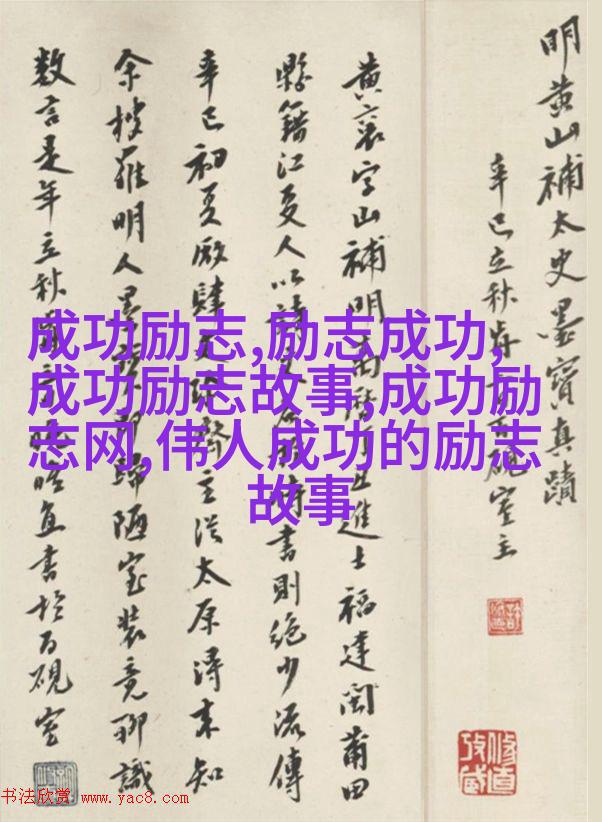 明黄山補太史墨寶真蹟
辛巳立秋
室主
黄襄字山補明
進士福建閩莆田
縣籍江夏人以詩
書則絶少流傳
辛巳初夏廠肆
主從太原淂来知
余搜羅明人墨
歸陋室装竟聊識
數言是年立秋
直書於百硯室
成功励志,励志成功,
成功励志故事,成功励
志网,伟人成功的励志
故事
书法欣赏 www.yac8.com